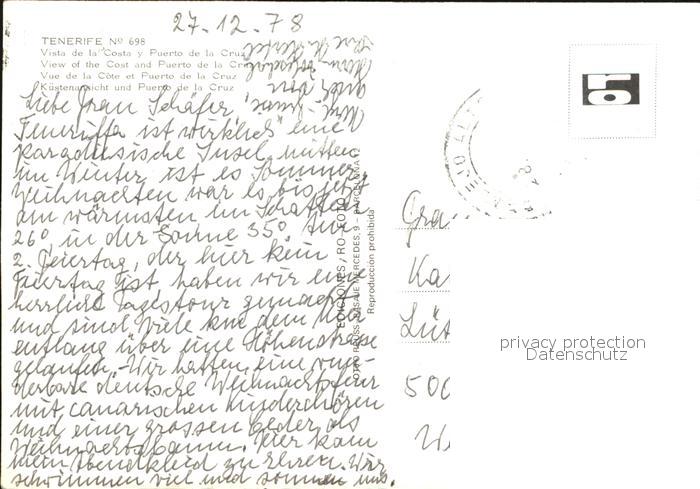 27.12.78
TENERIFE Nº 698
Vista de la Costa y Puerto de la Cruz
View of the Cost and Puerto de la Cruz
Vue de la Côte et Puerto de la Cruz
Küstenansicht und Puerto de la Cruz
Liebe Frau Schäfer,
Teneriffa ist wirklich eine
paradiesische Insel, mitten
im Winter ist es Sommer,
Weihnachten war es bis jetzt
am wärmsten im Schatten
26°, in der Sonne 35°. Am
2. Feiertag, der hier kein
Feiertag ist, haben wir eine
herrliche Tagestour gemacht
und sind viele km dem Meer
entlang über eine Höhenstrasse
gelaufen. Wir hatten eine wun-
derbare deutsche Weihnachtsfeier
mit canarischen Kinderchören
und einer grossen Zeder als
Weihnachtsbaum. Hier kam
mein Abendkleid zu Ehren. Wir
schwimmen viel und sonnen uns.
EDICIONES, RO-FOTO
PASAJE MERCEDES, 9 - BARCELONA
Reproducción prohibida
ro
Gra
Ka
Lüt
500
W.
privacy protection
Datenschutz